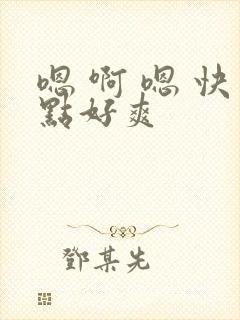 嗯啊嗯快
點好爽
鄧某先